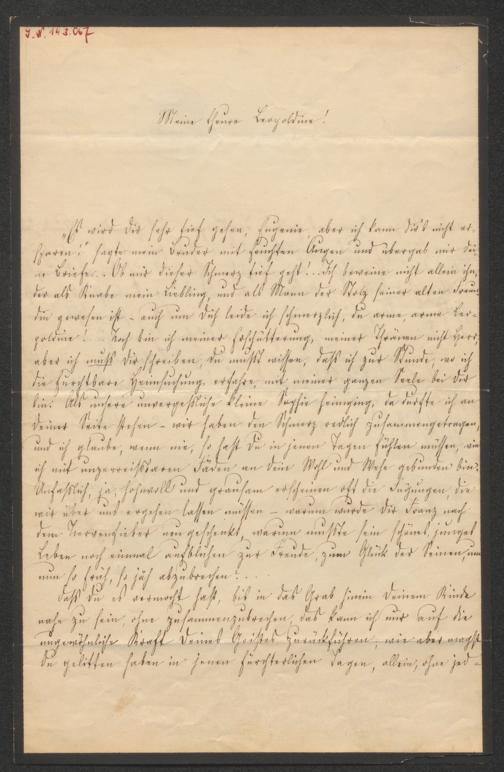 I.N. 143.067
Meine theure Leopoldine!
„Es wird Dir sehr tief gehen, Eugenie aber ich kann Dir's nicht er-
sparen" sagte mein Bruder mit feuchten Augen und übergab mir Dei-
ne Briefe. – Ob mir dieser Schmerz tief geht ... Ich beweine nicht allein ihn,
der als Knabe mein Liebling, und als Mann der Stolz seiner alten Freun-
din gewesen ist – auch um Dich leide ich schmerzlich, Du arme, arme Leo-
poldine! Noch bin ich meiner Erschütterung, meiner Thränen nicht Herr,
aber ich muß Dir schreiben, Du mußt wissen, daß ich zur Stunde, wo ich
die furchtbare Heimsuchung erfahre, mit meiner ganzen Seele bei Dir
bin. Als unsere unvergeßliche kleine Sophie heimging, da durfte ich an
Deiner Seite stehen – wir haben den Schmerz redlich zusammengetragen,
und ich glaube, wenn nie, so hast Du in jenen Tagen fühlen müssen, wie
ich mit unzerreißbaren Fäden an Dein Wohl und Wehe gebunden bin.
Unfaßlich, ja, hohnvoll und grausam erscheinen oft die Fügungen, die
wir über uns ergehen lassen müssen – warum wurde Dir Franz nach
dem Nervenfieber neu geschenkt, warum mußte sein schönes, junges
Leben noch einmal aufblühen zur Freude, zum Glück der Seinen, um
nun so früh, so jäh abzubrechen? ...
Daß Du es vermocht hast, bis in das Grab hinein Deinem Kinde
nahe zu sein, ohne zusammenzubrechen, das kann ich nur auf die
ungewöhnliche Kraft Deines Geistes zurückführen, wie aber mußt
Du gelitten haben in jenen fürchterlichen Tagen, allein, ohne jed-